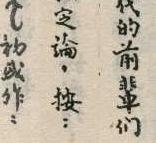 代的前辈们
定論，按：
初或作：